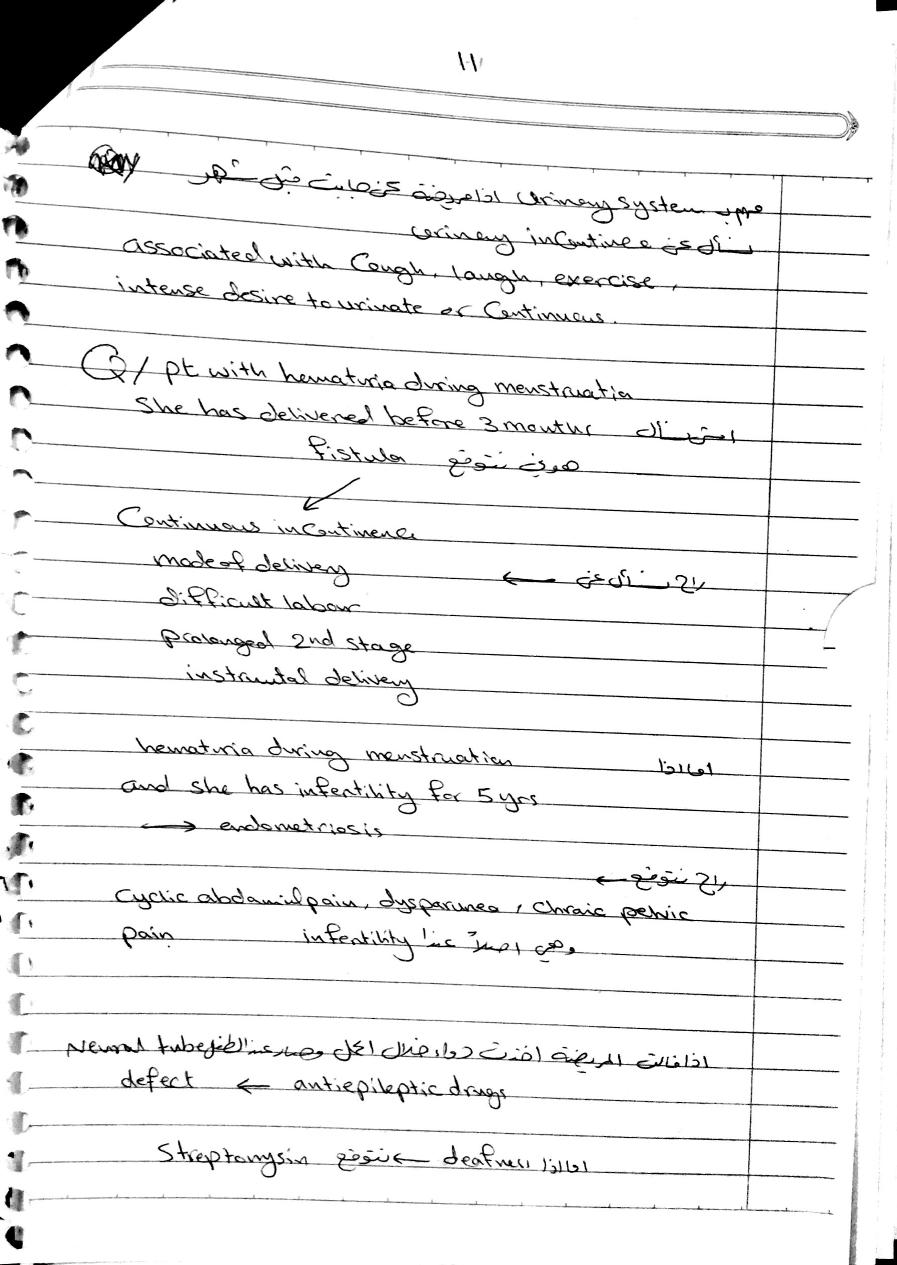 ١٠١
مهم بـ urinary system اذا مريضة كن جايبت قبل شهر
نسأل عن urinary incontinence
associated with Cough, laugh, exercise,
intense desire to urinate or Continuous.
Q/ pt with hematuria during menstruation
She has delivered before 3 months
هون نتوقع fistula
Continuous incontinence
راح نسأل عن ← mode of delivery
difficult labour
prolonged 2nd stage
instrumtal delivery
اما اذا hematuria during menstruation
and she has infertility for 5 yrs
→ endometriosis
راح نتوقع ←
Cyclic abdominl pain, dysparunea, chronic pelvic
pain وهي اصلاً عندا infertility
اذا قالت المريضة اخذت دواء خلال الحمل وصار عند الطفل Neural tube
defect ← antiepileptic drugs
اما اذا deafness ← نتوقع Streptomysin